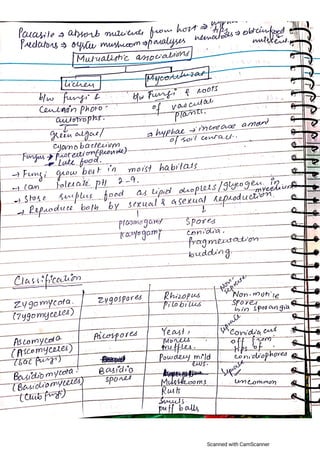 Parasite → absorb nutrients from host →
Predators → oyster mushroom → paralyses nematodes → obtain food
Mutualistic associations
Lichen
Mycorrhizae
b/w fungi &
Certain photo-
autotrophs.
green algae/
cyanobacterium
b/w Fungi & roots
of vascular
plants.
→ hyphae → increase
of soil contact.
Fungus → protection
→ Fungi grow best in moist habitats
→ Can tolerate pH 2-9.
→ Store surplus food as lipid droplets/glycogen in mycelium
→ Reproduce both by sexual & asexual reproduction.
plasmogamy
karyogamy
Spores
conidia.
fragmentation
budding
Classification
Zygomycota.
(Zygomycetes)
Zygospores
Rhizopus
Pilobilus
Non-motile
spores
in sporangia
Ascomycota
(Ascomycetes)
(sac fungi)
Ascospores
Yeast,
Morels
truffles.
Powdery mild
ews.
Conidia cut
off from
tips of
conidiophores
Basidiomycota.
(Basidiomycetes)
(Club fungi)
Basidio
spores
Mushrooms
Rusts
Smuts
puff balls
uncommon
Scanned with CamScanner